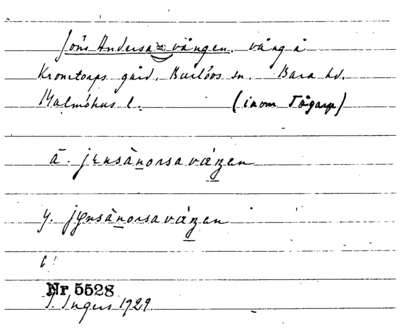 Jöns Andersa=vången. vång å
Kronetorps gård, Burlövs sn. Bara hd.
Malmöhus l. (inom Tågarp)
ä. jensànorsavángen
y. jensànorsavángen
Nr 5528
J. Ingers 1929.